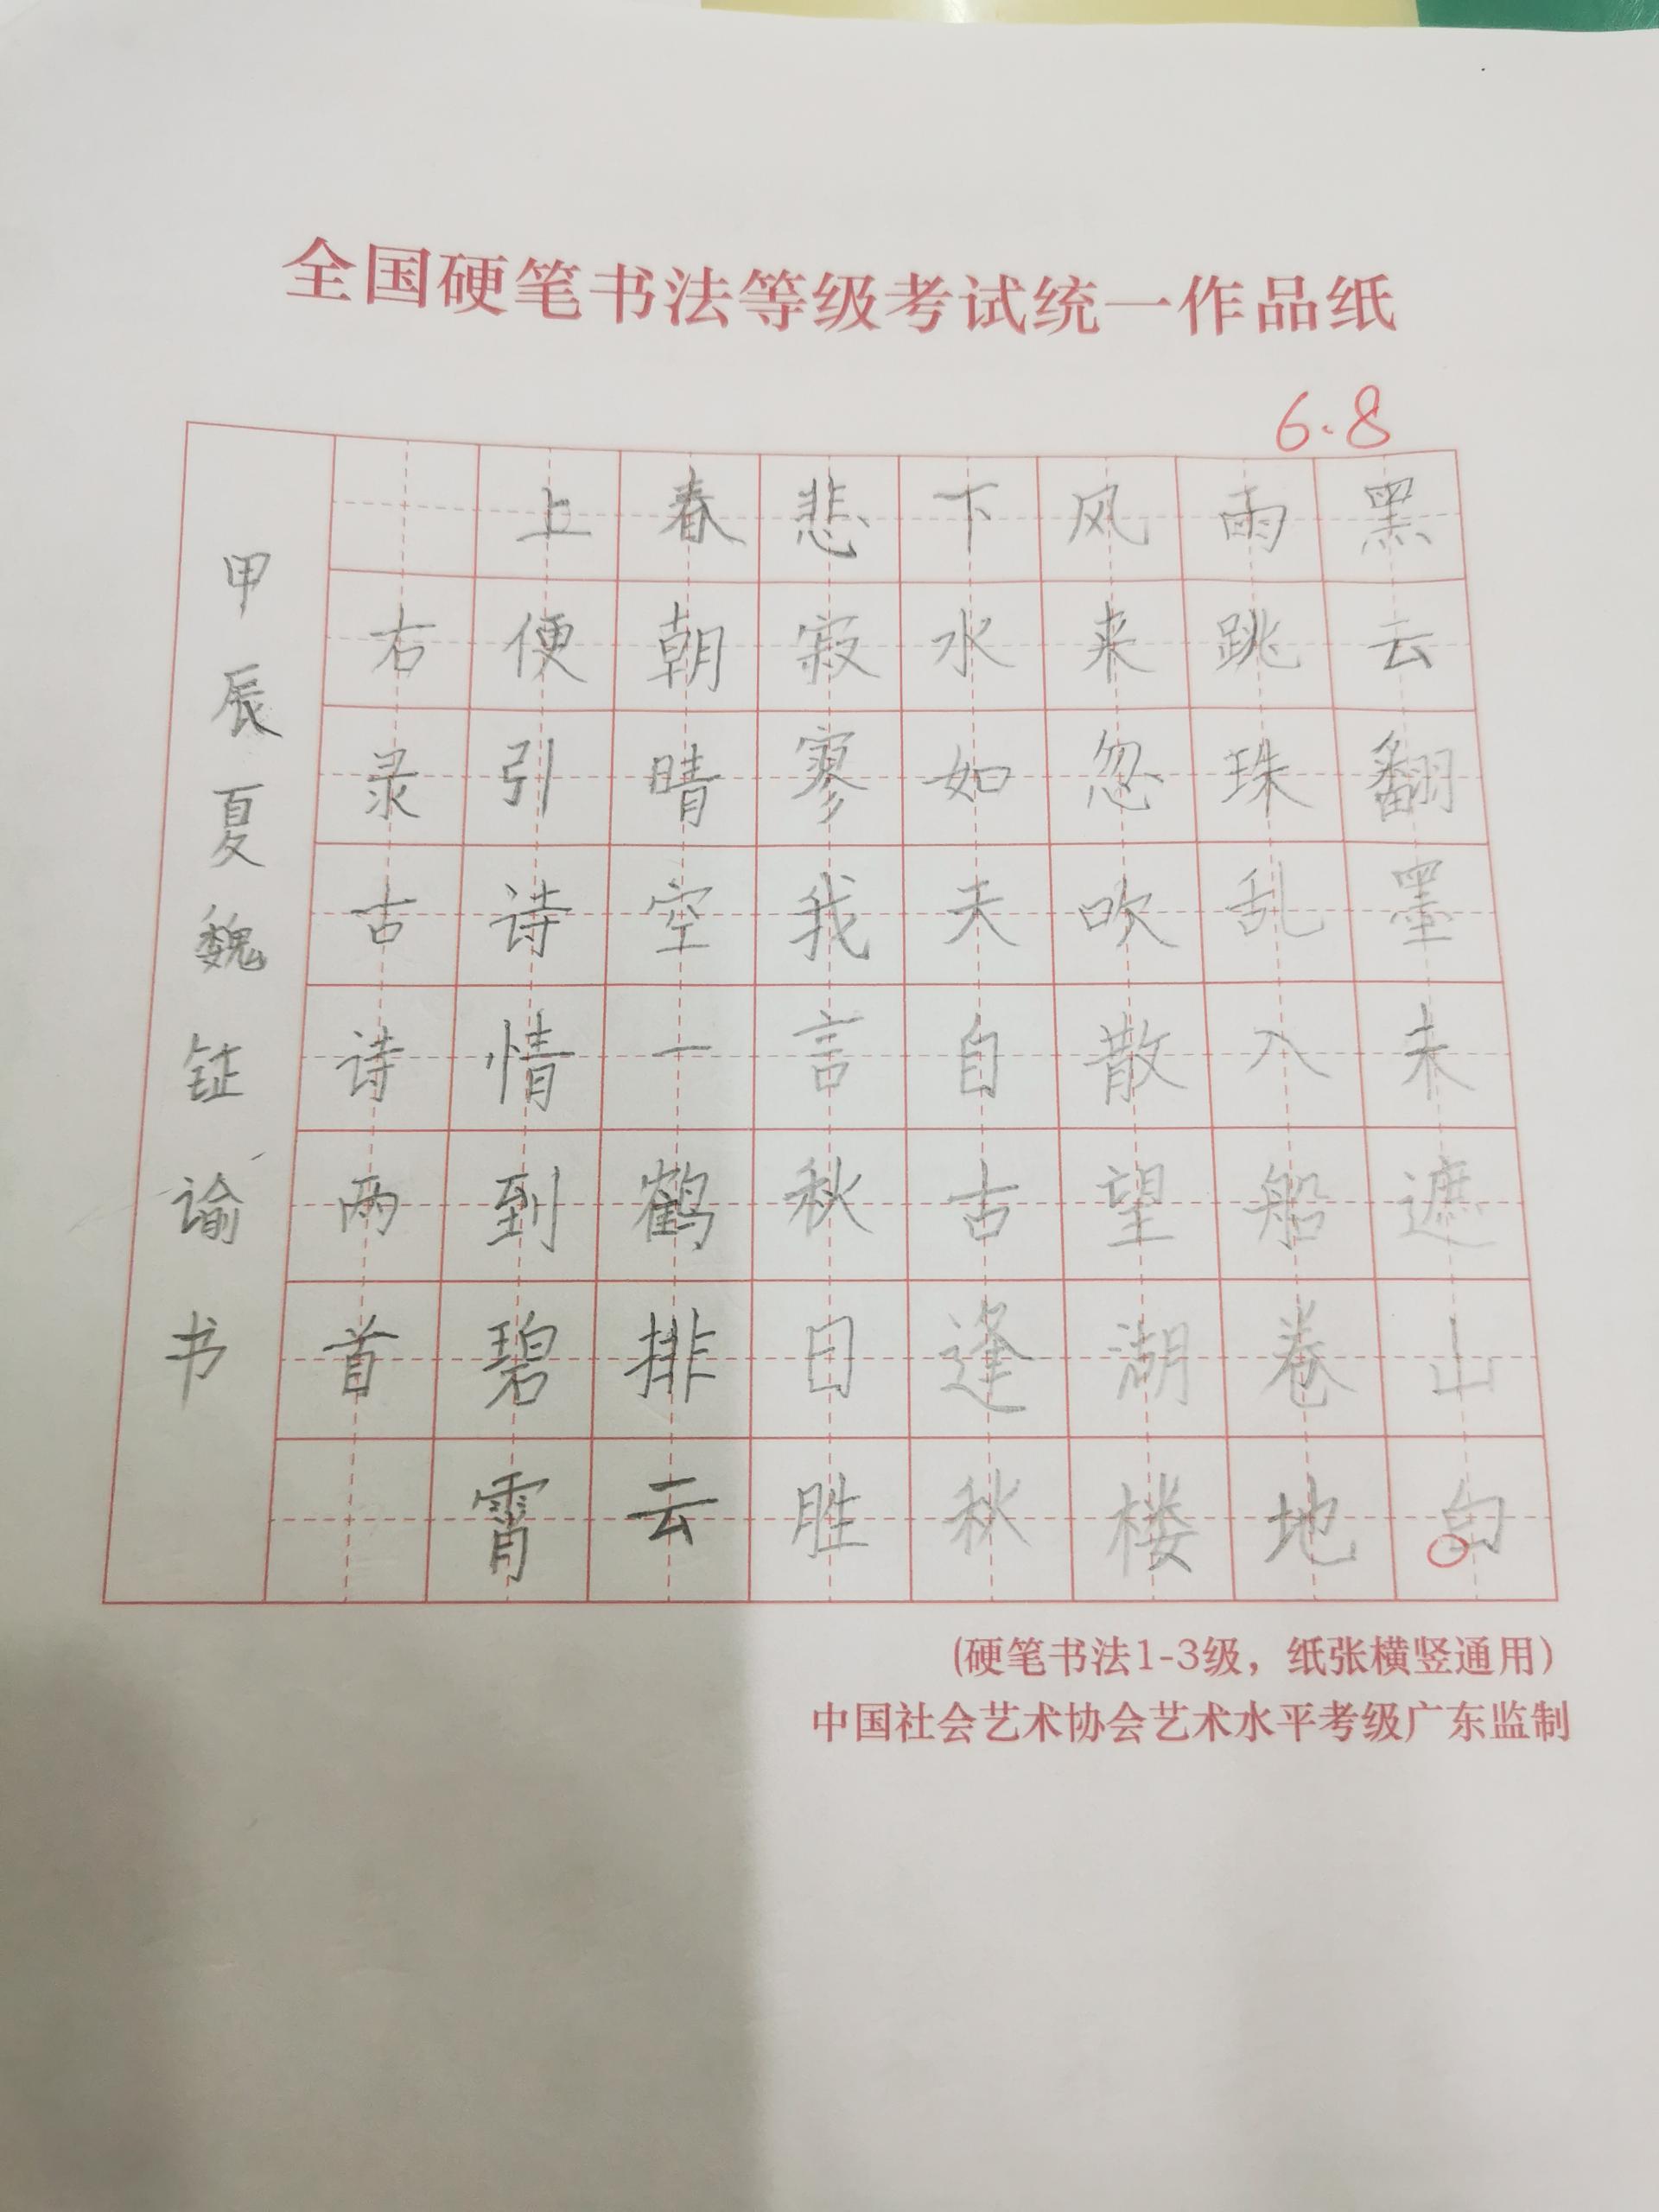 全国硬笔书法等级考试统一作品纸
6.8
黑云翻墨未遮山白
雨跳珠乱入船卷地
风来忽吹散望湖楼
下水如天自古逢秋
悲寂寥我言秋日胜
春朝晴空一鹤排云
上便引诗情到碧霄
右录古诗两首
甲辰夏魏钲谕书
(硬笔书法1-3级，纸张横竖通用)
中国社会艺术协会艺术水平考级广东监制